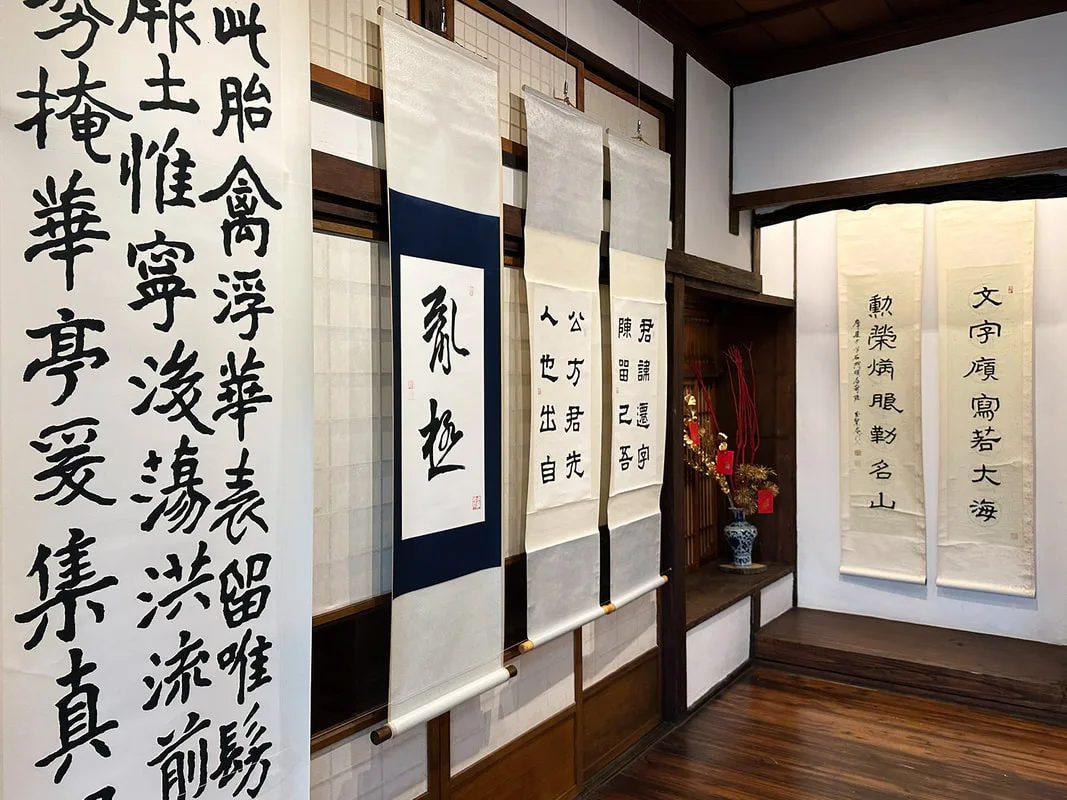 文字寫若大海
勳榮服勤名山
君諱遷字
陳留己吾
公方君先
人也出自
極
此胎禽浮華表留唯髣
厥土惟寧後蕩洪流前
勢掩華亭爰集真